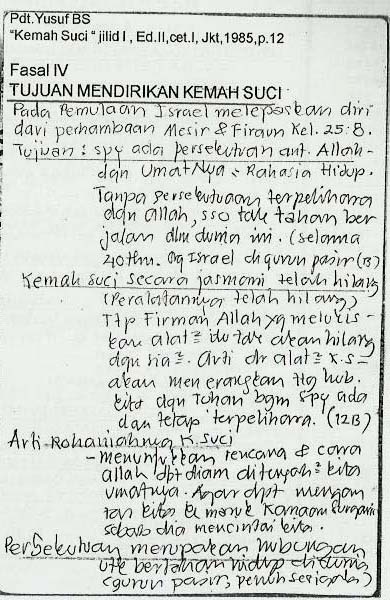 Pdt.Yusuf BS
"Kemah Suci " jilid I , Ed.II,cet.I, Jkt,1985,p.12
Fasal IV
TUJUAN MENDIRIKAN KEMAH SUCI
Pada Pemulaan Israel melepaskan diri
dari perhambaan Mesir & Firaun Kel. 25:8.
Tujuan : spy ada persekutuan ant. Allah
dgn UmatNya = Rahasia Hidup.
Tanpa persekutuan terpelihara
dgn Allah, sso tak tahan ber
jalan dlm dunia ini. (selama
40 thn. Bg Israel di gurun pasir (B)
Kemah suci secara jasmani telah hilang
(Peralatannya telah hilang)
Ttp Firman Allah yg melukis-
kan alat² itu tak akan hilang
dgn sia². Arti dr alat² K.S=
akan menerangkan ttg hub.
kita dgn Tuhan bgm spy ada
dan tetap terpelihara. (12B)
Arti Rohaniahnya K. Suci
- menunjukkan rencana & cara
Allah dpt diam ditengah² kita
umatnya. Agar dpt mengan
tar kita ke masuk Kanaan
sebab dia mencintai kita.
Persekutuan merupakan hubungan
utk bertahan hidup di dunia
(gurun pasir, penuh serigala)